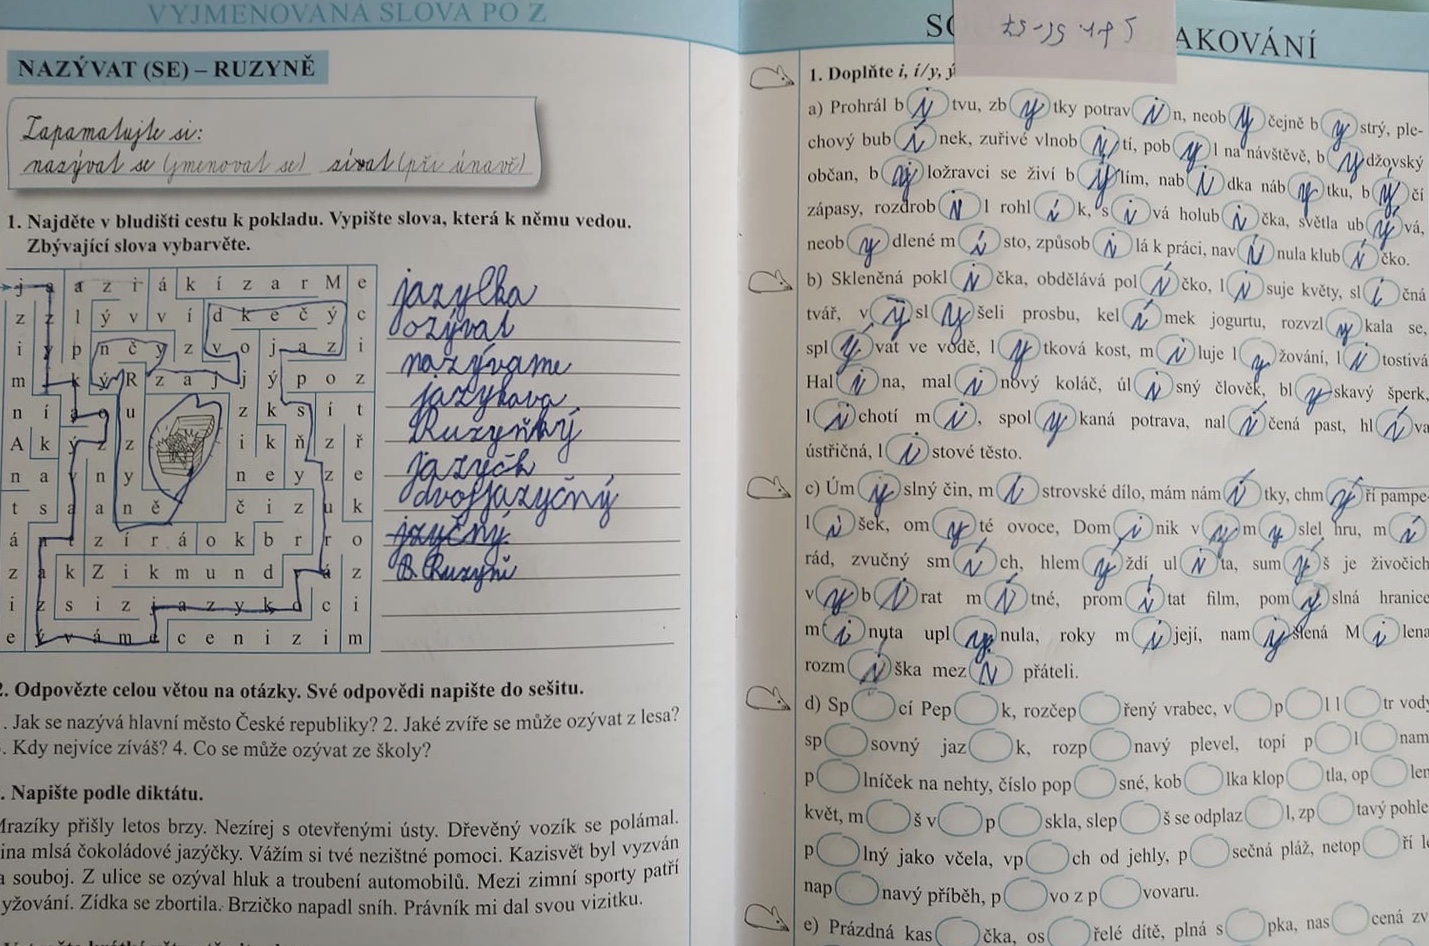 VYJMENOVANÁ SLOVA PO Z
NAZÝVAT (SE) – RUZYNĚ
Zapamatujte si:
nazývat se (jmenovat se) zívat (při únavě)
1. Najděte v bludišti cestu k pokladu. Vypište slova, která k němu vedou.
Zbývající slova vybarvěte.
j a a z i á k í z a r M e
z z l ý v v í d k e č ý c
i y p n č y z v o j a z i
m l k ý R z a j j ý p o z
n í a o u z k s í t
A k ý z z i k ň z ř
n a v n y n e y z e
t s a a n ě č i z u k
á n t z í r á o k b r r o
z a k Z i k m u n d y á z
i z s i z j a z y k o c i
e ý v á m e c e n i z i m
jazylka
ozýval
nazívame
jazykova
Ruzyňký
jazýčk
dvojjazyčný
jzyčný
Ruzyni
2. Odpovězte celou větou na otázky. Své odpovědi napište do sešitu.
. Jak se nazývá hlavní město České republiky? 2. Jaké zvíře se může ozývat z lesa?
. Kdy nejvíce zíváš? 4. Co se může ozývat ze školy?
. Napište podle diktátu.
Mrazíky přišly letos brzy. Nezírej s otevřenými ústy. Dřevěný vozík se polámal.
ina mlsá čokoládové jazýčky. Vážím si tvé nezištné pomoci. Kazisvět byl vyzván
a souboj. Z ulice se ozýval hluk a troubení automobilů. Mezi zimní sporty patří
yžování. Zídka se zbortila. Brzičko napadl sníh. Právník mi dal svou vizitku.
SO AKOVÁNÍ
1. Doplňte i, í/y, ý
a) Prohrál b i tvu, zb y tky potrav i n, neob y čejně b y strý, ple-
chový bub í nek, zuřivé vlnob i tí, pob y l na návštěvě, b y džovský
občan, b ý ložravci se živí b ý lím, nab í dka náb y tku, b ý čí
zápasy, rozdrob i l rohl í k, s i vá holub i čka, světla ub ý vá,
neob y dlené m í sto, způsob i lá k práci, nav i nula klub í čko.
b) Skleněná pokl i čka, obdělává pol í čko, l i suje květy, sl i čná
tvář, v y sl y šeli prosbu, kel í mek jogurtu, rozvzl y kala se,
spl ý vat ve vodě, l y tková kost, m i luje l y žování, l i tostivá
Hal i na, mal i nový koláč, úl i sný člověk, bl y skavý šperk,
l i chotí m i, spol y kaná potrava, nal í čená past, hl í va
ústřičná, l i stové těsto.
c) Úm y slný čin, m i strovské dílo, mám nám i tky, chm ý ří pampe-
l i šek, om y té ovoce, Dom i nik v y m y slel hru, m í
rád, zvučný sm í ch, hlem ý ždí ul i ta, sum ý š je živočich
v y b í rat m í tné, prom í tat film, pom y slná hranice
m i nuta upl y nula, roky m í její, nam y šlená M i lena
rozm í ška mez i přáteli.
d) Sp cí Pep k, rozčep řený vrabec, v p l l tr vody
sp sovný jaz k, rozp navý plevel, topí p l nam
p lníček na nehty, číslo pop sné, kob lka klop tla, op len
květ, m š v p skla, slep š se odplaz l, zp tavý pohle
p lný jako včela, vp ch od jehly, p sečná pláž, netop ří le
nap navý příběh, p vo z p vovaru.
e) Prázdná kas čka, os řelé dítě, plná s pka, nas cená zv